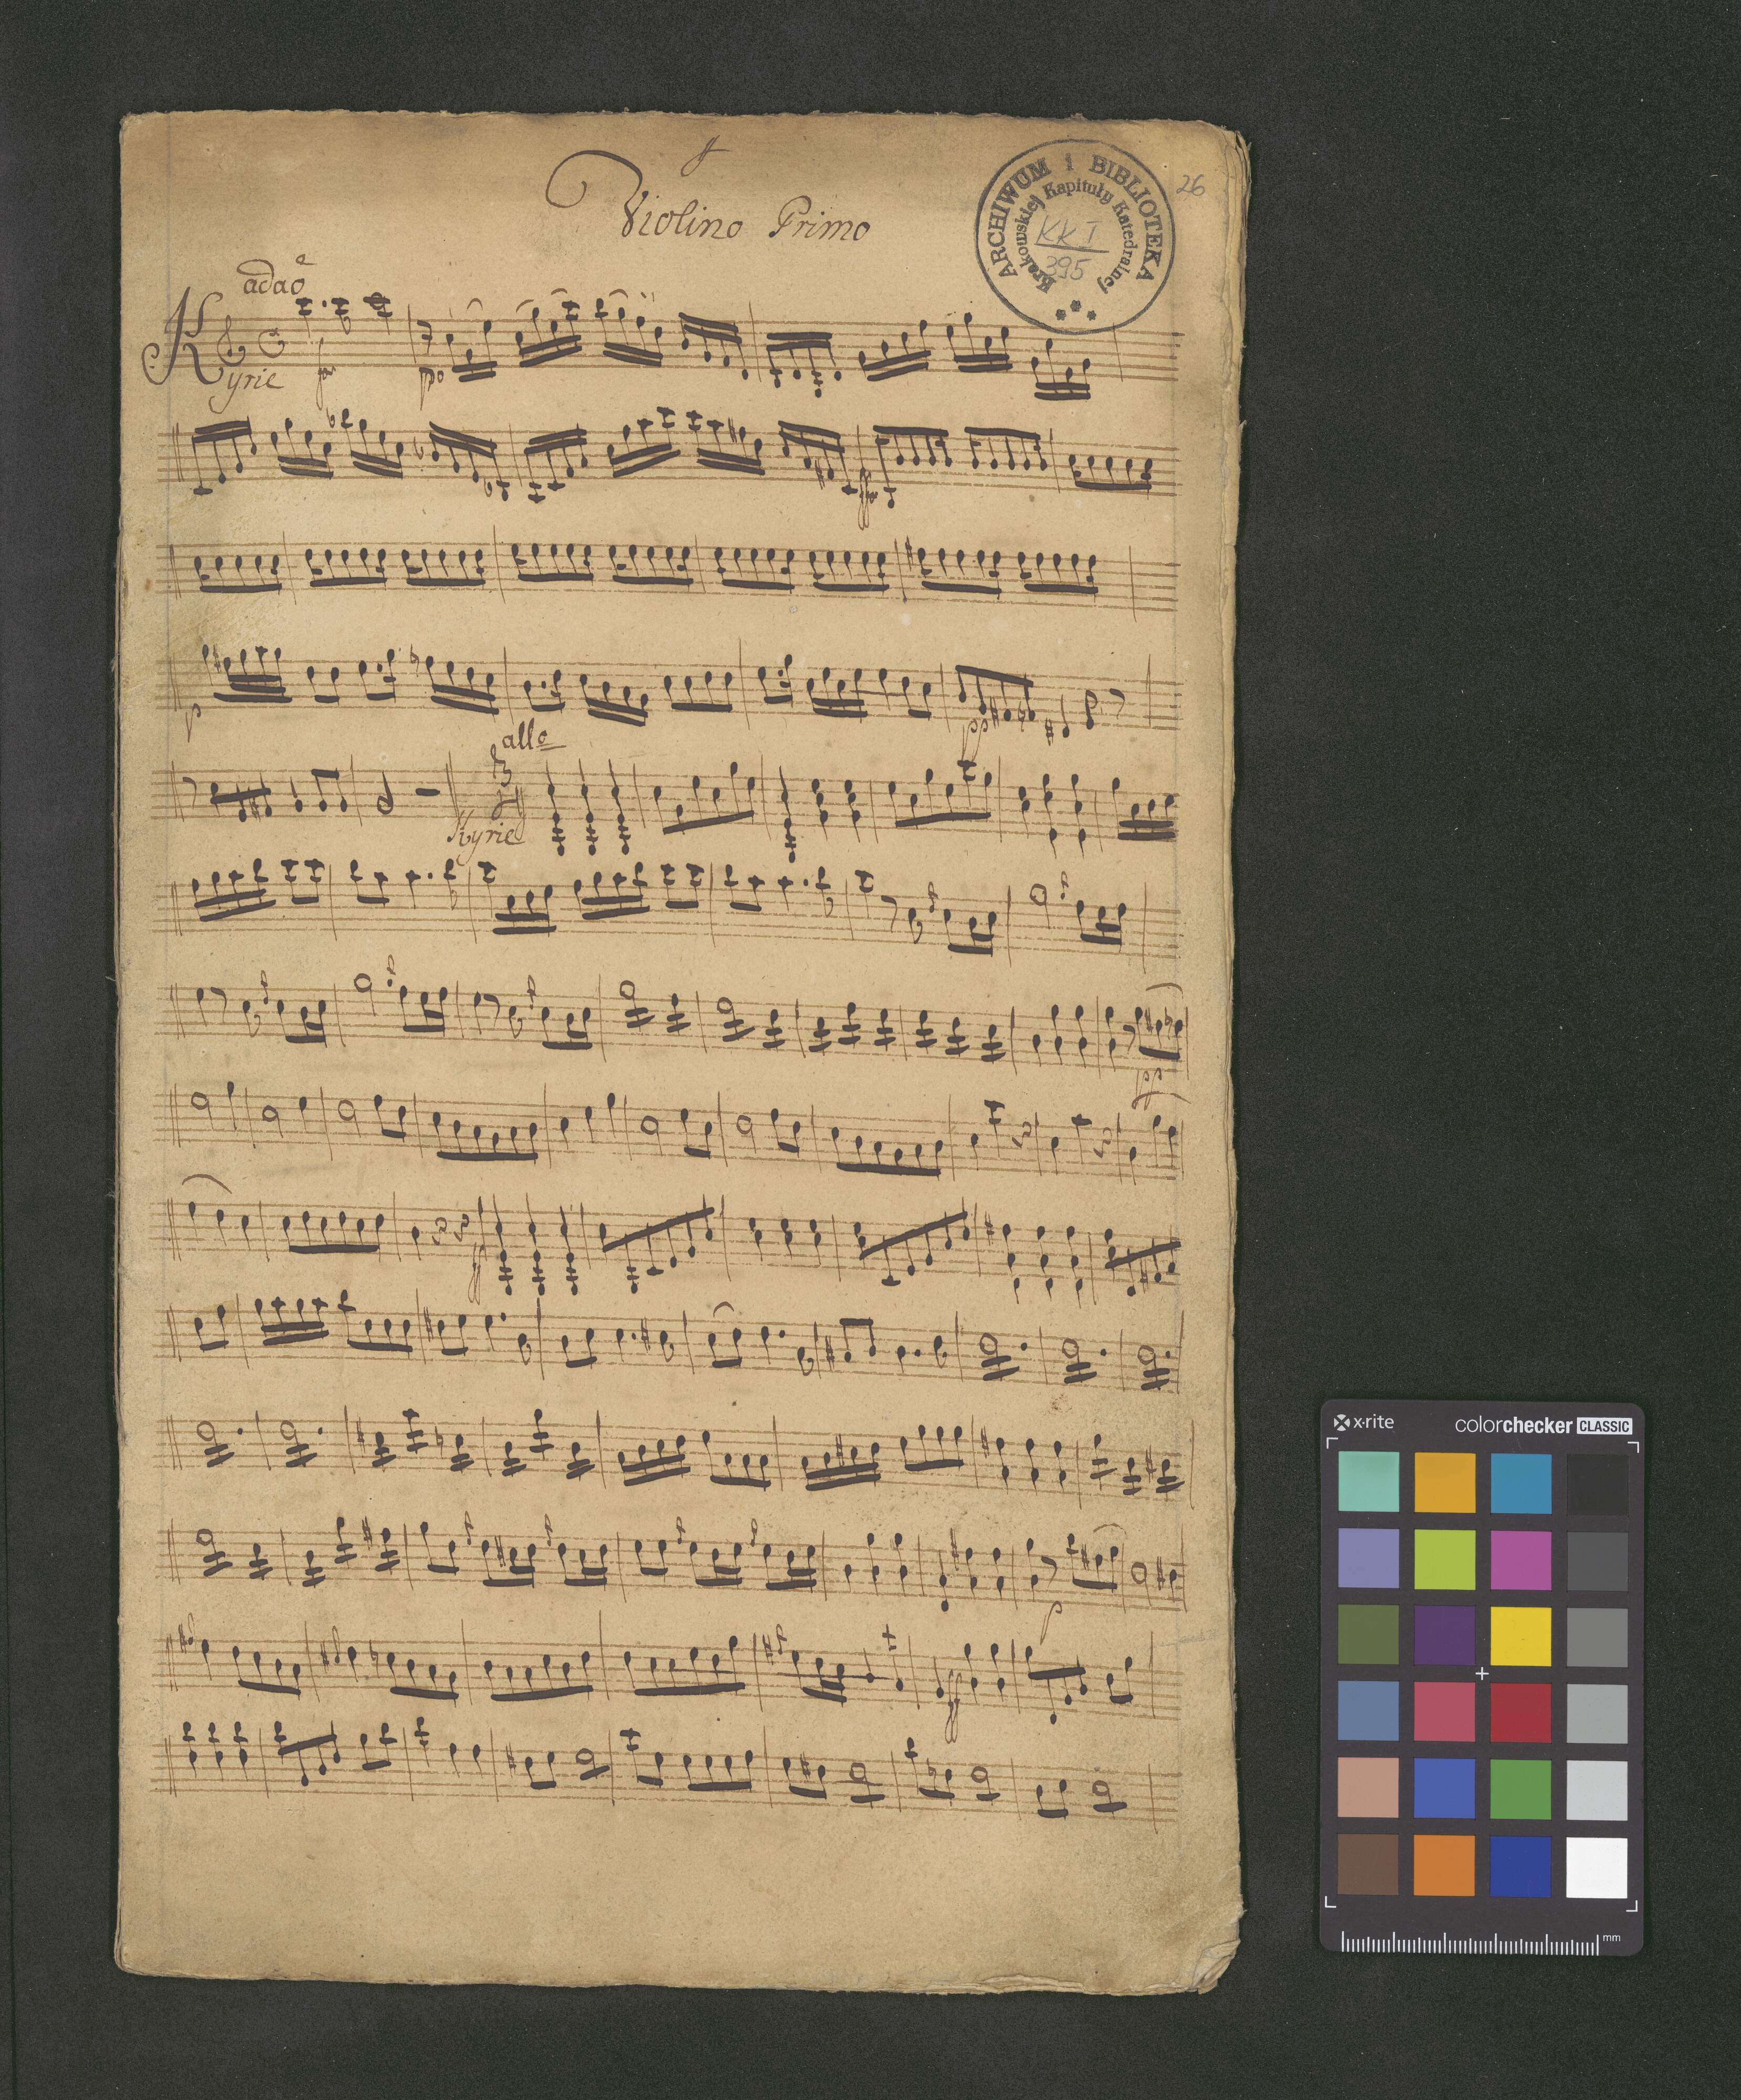 Violino Primo
26
ARCHIWUM i BIBLIOTEKA
Krakowskiej Kapituły Katedralnej
KK I
395
adao
Kyrie
for
ppo
p
pp
allo
3
Kyrie
pp
ff
p
ff
x-rite
colorchecker CLASSIC
mm